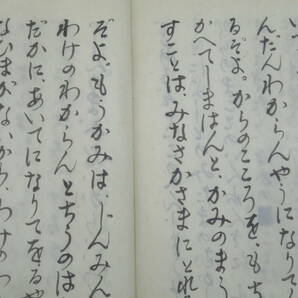 んだんわからんやうになり
るぞよ。からのこころを、もち
かへてしまはんと、かみのまう
すことは、みなさかさまにとれ
ぞよ、もうかみは、じんみん
わけのわからんとちうのは
だかに、あいてになりてをるや
なひまがないから、わけのつ